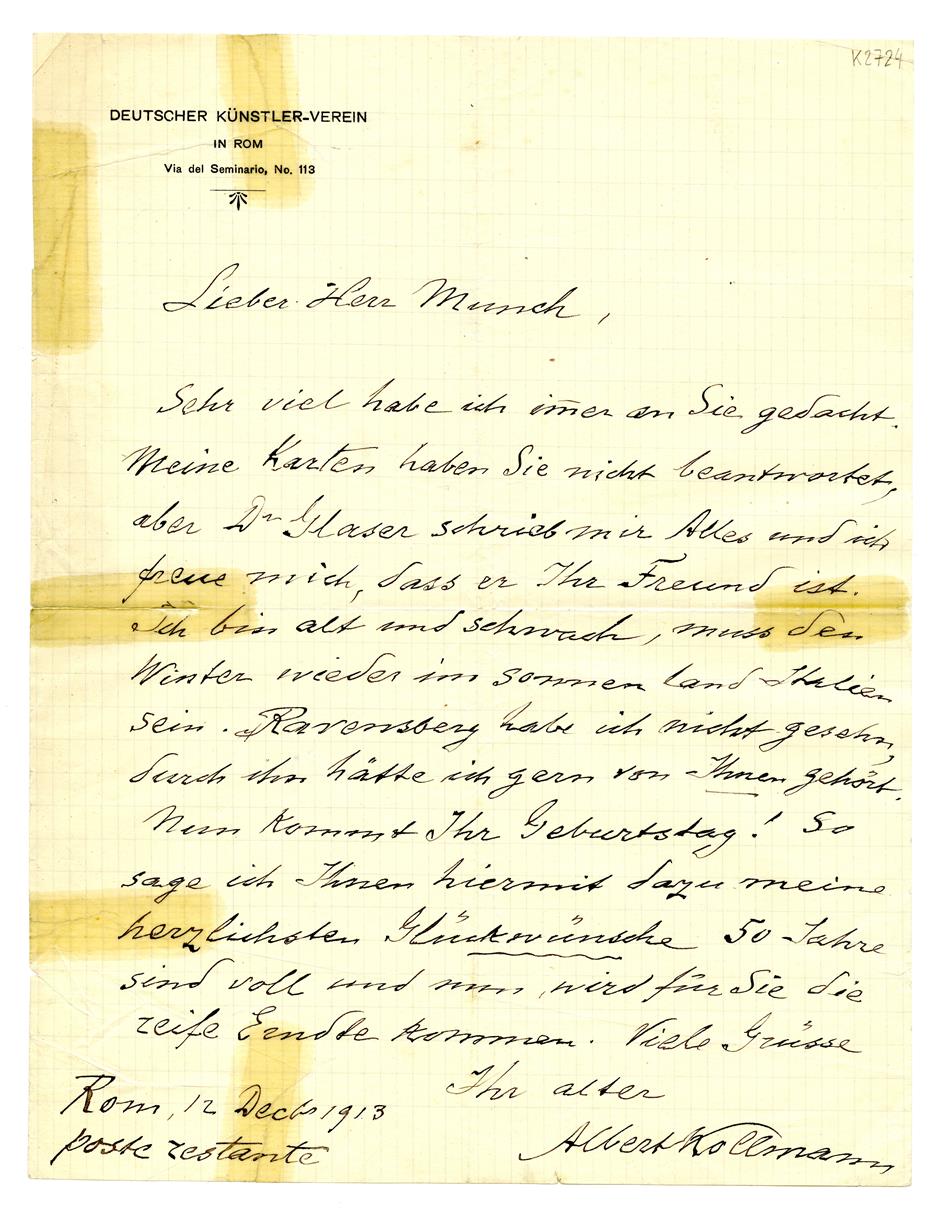 K2724
DEUTSCHER KÜNSTLER-VEREIN
IN ROM
Via del Seminario, No. 113
Lieber Herr Munch,
Sehr viel habe ich im̄er an Sie gedacht.
Meine Karten haben Sie nicht beantwortet,
aber Dr Glaser schrieb mir Alles und ich
freue mich, dass er Ihr Freund ist.
Ich bin alt und schwach, muss den
Winter wieder im Sonnen land Italien
sein. Ravensberg habe ich nicht gesehn,
durch ihn hätte ich gern von Ihnen gehört.
Nun kommt Ihr Geburtstag! So
sage ich Ihnen hiermit dazu meine
herzlichsten Glückwünsche 50 Jahre
sind voll und nun wird für Sie die
reife Erndte kommen. Viele Grüsse
Ihr alter
Albert Kollmann
Rom, 12 Decbr 1913
poste restante